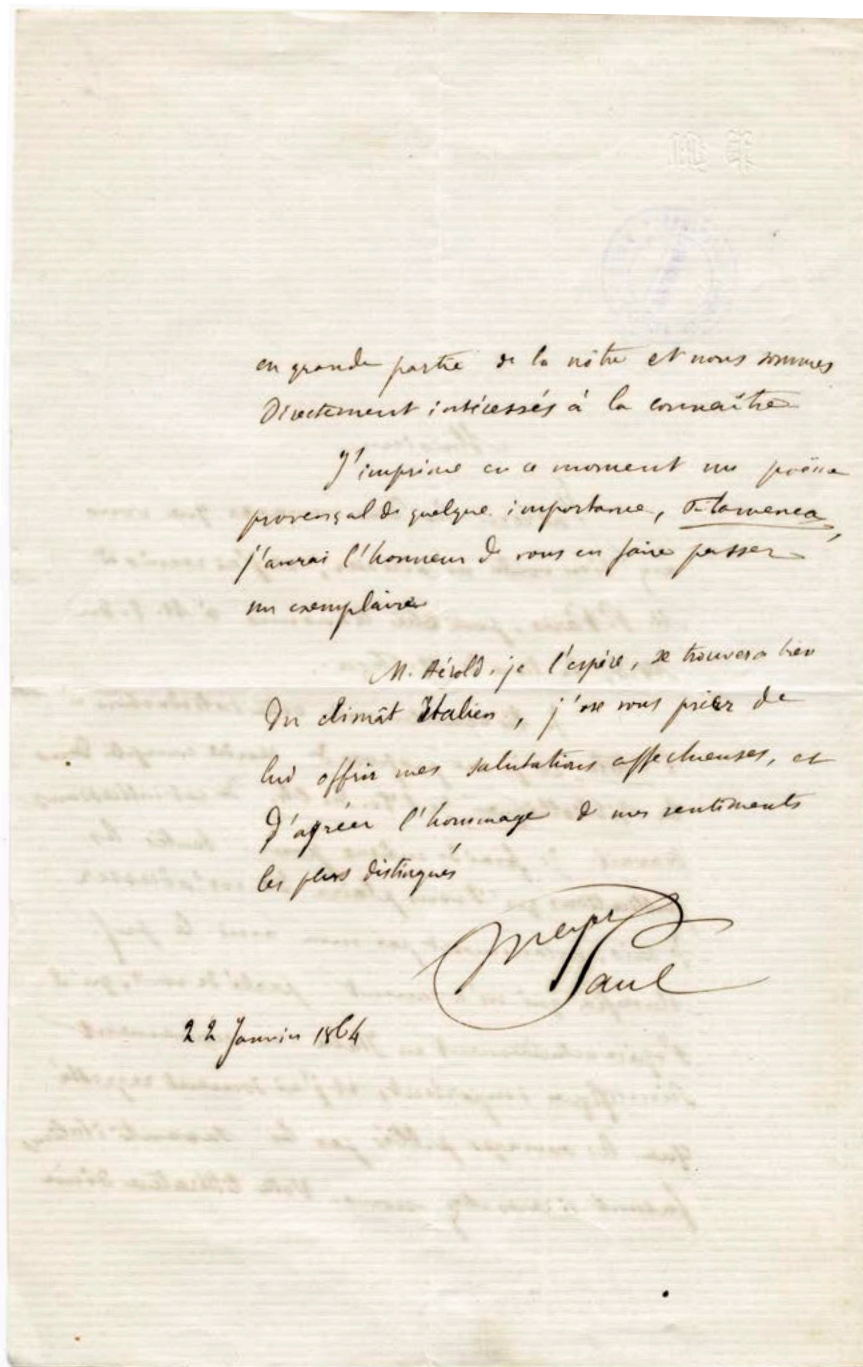 en grande partie de la nôtre et nous sommes
Directement intéressés à la connaître
J'imprime en ce moment un poëme
provençal de quelque importance, Flamenca,
j'aurai l'honneur de vous en faire passer
un exemplaire
M. Hérold, je l'espère, se trouvera bien
Du climât Italien, j'ose vous prier de
lui offrir mes salutations affectueuses, et
D'agréer l'hommage de mes sentiments
les plus distingués
Meyer
Paul
22 Janvier 1864